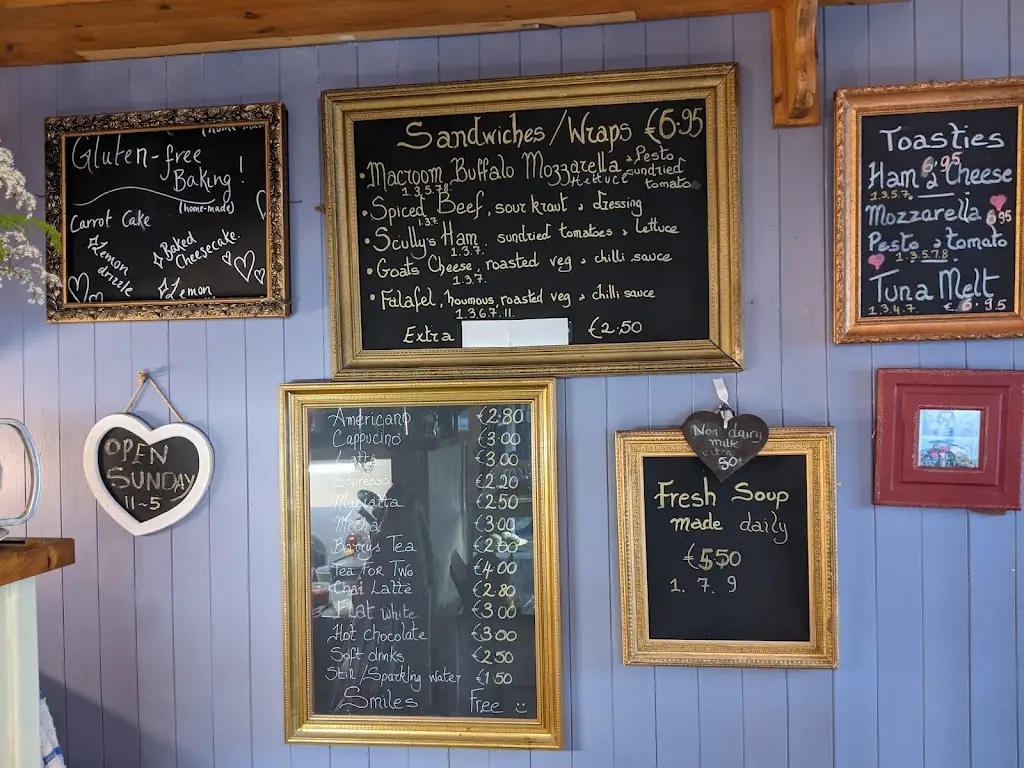 (home-made)
Gluten-free
Baking!
(home-made)
Carrot Cake
Lemon
drizzle
Baked
Cheesecake.
Lemon
Sandwiches/Wraps €6.95
• Macroom Buffalo Mozzarella, Pesto
Lettuce sundried
1.3.5.7.8. tomato
• Spiced Beef, sour kraut & dressing
1.3.7.
• Scully's Ham sundried tomatoes & Lettuce
1.3.7.
• Goats Cheese, roasted veg & chilli sauce
1.3.7.
• Falafel, houmous, roasted veg & chilli sauce
1.3.6.7.11.
Extra €2.50
Toasties
6.95
Ham & Cheese
1.3.5.7.
Mozzarella 6.95
Pesto & tomato
1.3.5.7.8
Tuna Melt
1.3.4.7. €6.95
OPEN
SUNDAY
11-5
Americano €2.80
Cappucino €3.00
Latte €3.00
Espresso €2.20
Maciatta €2.50
Mocha €3.00
Barrys Tea
Tea For Two €4.00
Chai Latte €2.80
Flat white €3.00
Hot chocolate €3.00
Soft drinks €2.50
Still/Sparkling water €1.50
Smiles Free
Non dairy
milk
extra
50c
Fresh Soup
made daily
€5.50
1. 7. 9